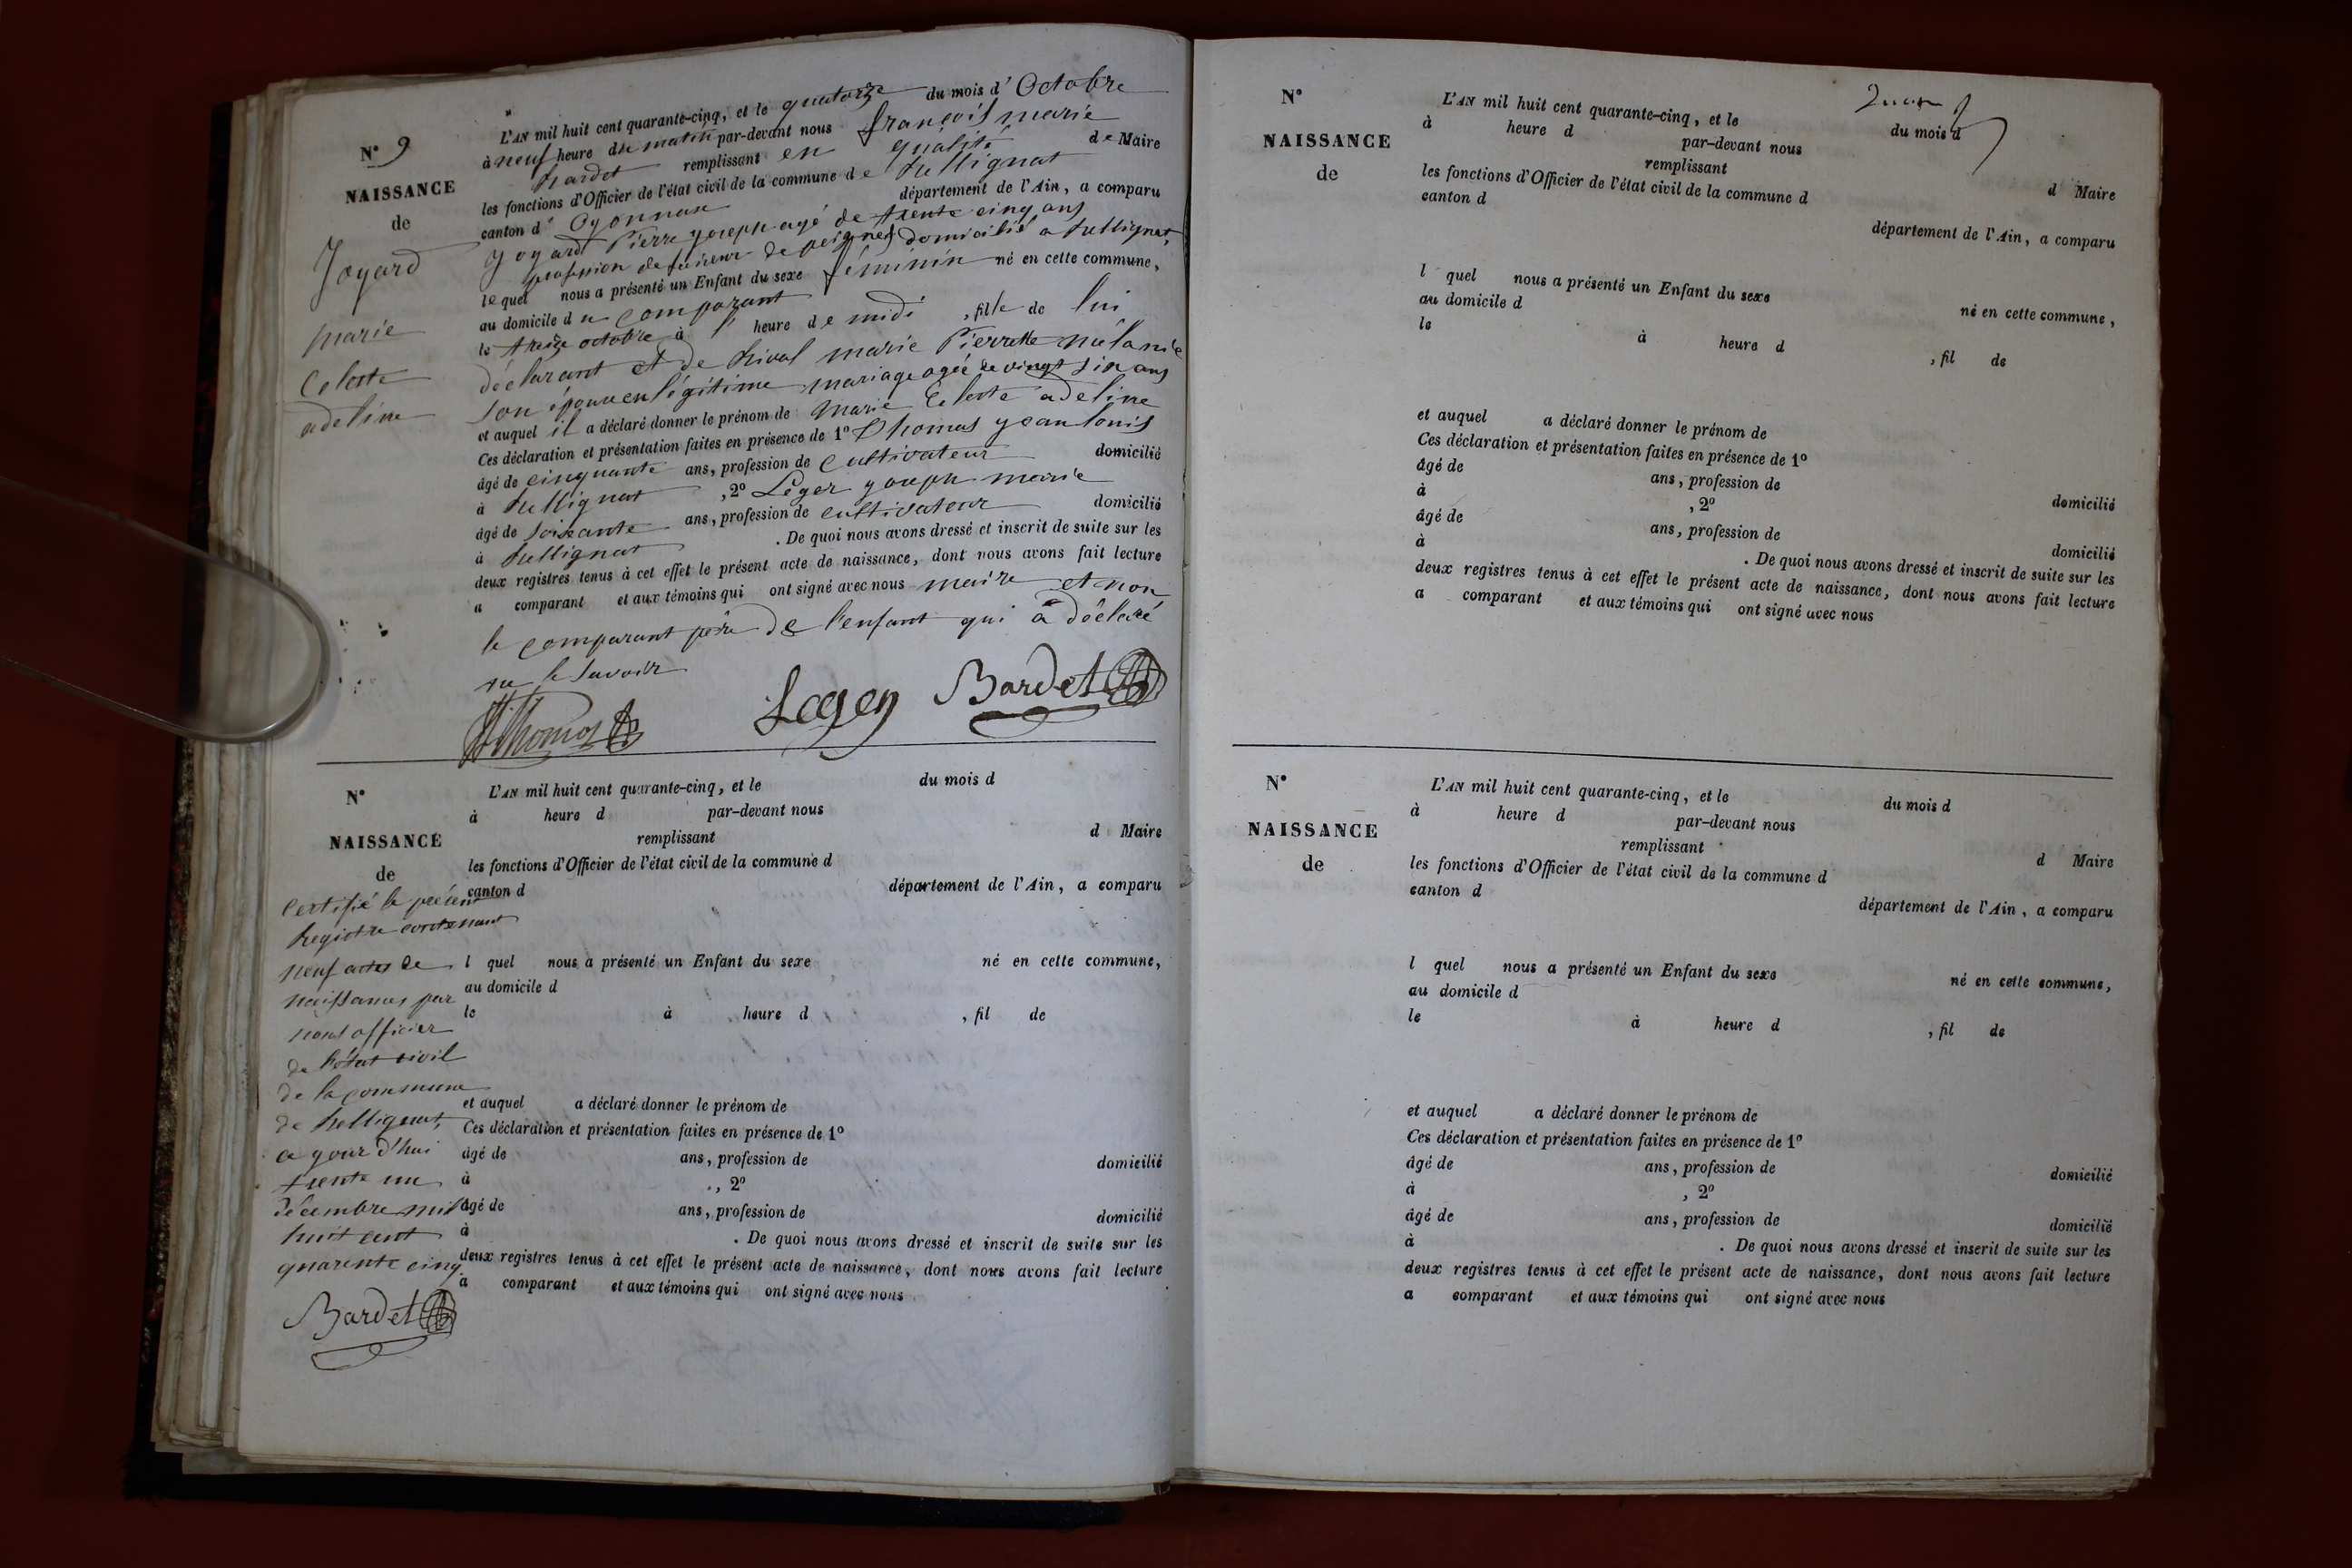 N° 9
NAISSANCE
de
Joyard
marie
Celeste
adeline
L'AN mil huit cent quarante-cinq, et le quatorze du mois d' Octobre
à neuf heure du matin par-devant nous françois marie
Bardet remplissant en qualité de Maire
les fonctions d'Officier de l'état civil de la commune de Bellignat
canton d' Oyonnax département de l'Ain, a comparu
Joyard Pierre yoseph agé de trente cinq ans
profession de faiseur de peignes domicilié a bellignat,
lequel nous a présenté un Enfant du sexe féminin né en cette commune,
au domicile du comparant
le treize octobre à l' heure de midi , fille de lui
déclarant et de marie Pierrette mélanie
son épouse en légitime mariage agée de vingt six ans
et auquel il a déclaré donner le prénom de marie Celeste adeline
Ces déclaration et présentation faites en présence de 1° Thomas yean louis
âgé de cinquante ans, profession de cultivateur domicilié
à bellignat , 2° Léger yoseph marie
âgé de soixante ans, profession de cultivateur domicilié
à bellignat . De quoi nous avons dressé et inscrit de suite sur les
deux registres tenus à cet effet le présent acte de naissance, dont nous avons fait lecture
a comparant et aux témoins qui ont signé avec nous maire et non
le comparant père de l'enfant qui à déclaré
ne le savoir
Thomas Leger Bardet
N°
NAISSANCE
de
L'AN mil huit cent quarante-cinq, et le du mois d
à heure d par-devant nous
remplissant d Maire
les fonctions d'Officier de l'état civil de la commune d
canton d département de l'Ain, a comparu
l quel nous a présenté un Enfant du sexe né en cette commune,
au domicile d
le à heure d , fil de
et auquel a déclaré donner le prénom de
Ces déclaration et présentation faites en présence de 1°
âgé de ans, profession de domicilié
à , 2°
âgé de ans, profession de domicilié
à . De quoi nous avons dressé et inscrit de suite sur les
deux registres tenus à cet effet le présent acte de naissance, dont nous avons fait lecture
a comparant et aux témoins qui ont signé avec nous
Certifié le présent
Registre contenant
neuf actes de
naissances par
nous officier
de l'état civil
de la commune
de bellignat,
a yourd'hui
trente un
décembre mil
huit cent
quarente cinq.
Bardet
N°
NAISSANCE
de
L'AN mil huit cent quarante-cinq, et le du mois d
à heure d par-devant nous
remplissant d Maire
les fonctions d'Officier de l'état civil de la commune d
canton d département de l'Ain, a comparu
l quel nous a présenté un Enfant du sexe né en cette commune,
au domicile d
le à heure d , fil de
et auquel a déclaré donner le prénom de
Ces déclaration et présentation faites en présence de 1°
âgé de ans, profession de domicilié
à , 2°
âgé de ans, profession de domicilié
à . De quoi nous avons dressé et inscrit de suite sur les
deux registres tenus à cet effet le présent acte de naissance, dont nous avons fait lecture
a comparant et aux témoins qui ont signé avec nous
N°
NAISSANCE
de
L'AN mil huit cent quarante-cinq, et le du mois d
à heure d par-devant nous
remplissant d Maire
les fonctions d'Officier de l'état civil de la commune d
canton d département de l'Ain, a comparu
l quel nous a présenté un Enfant du sexe né en cette commune,
au domicile d
le à heure d , fil de
et auquel a déclaré donner le prénom de
Ces déclaration et présentation faites en présence de 1°
âgé de ans, profession de domicilié
à , 2°
âgé de ans, profession de domicilié
à . De quoi nous avons dressé et inscrit de suite sur les
deux registres tenus à cet effet le présent acte de naissance, dont nous avons fait lecture
a comparant et aux témoins qui ont signé avec nous